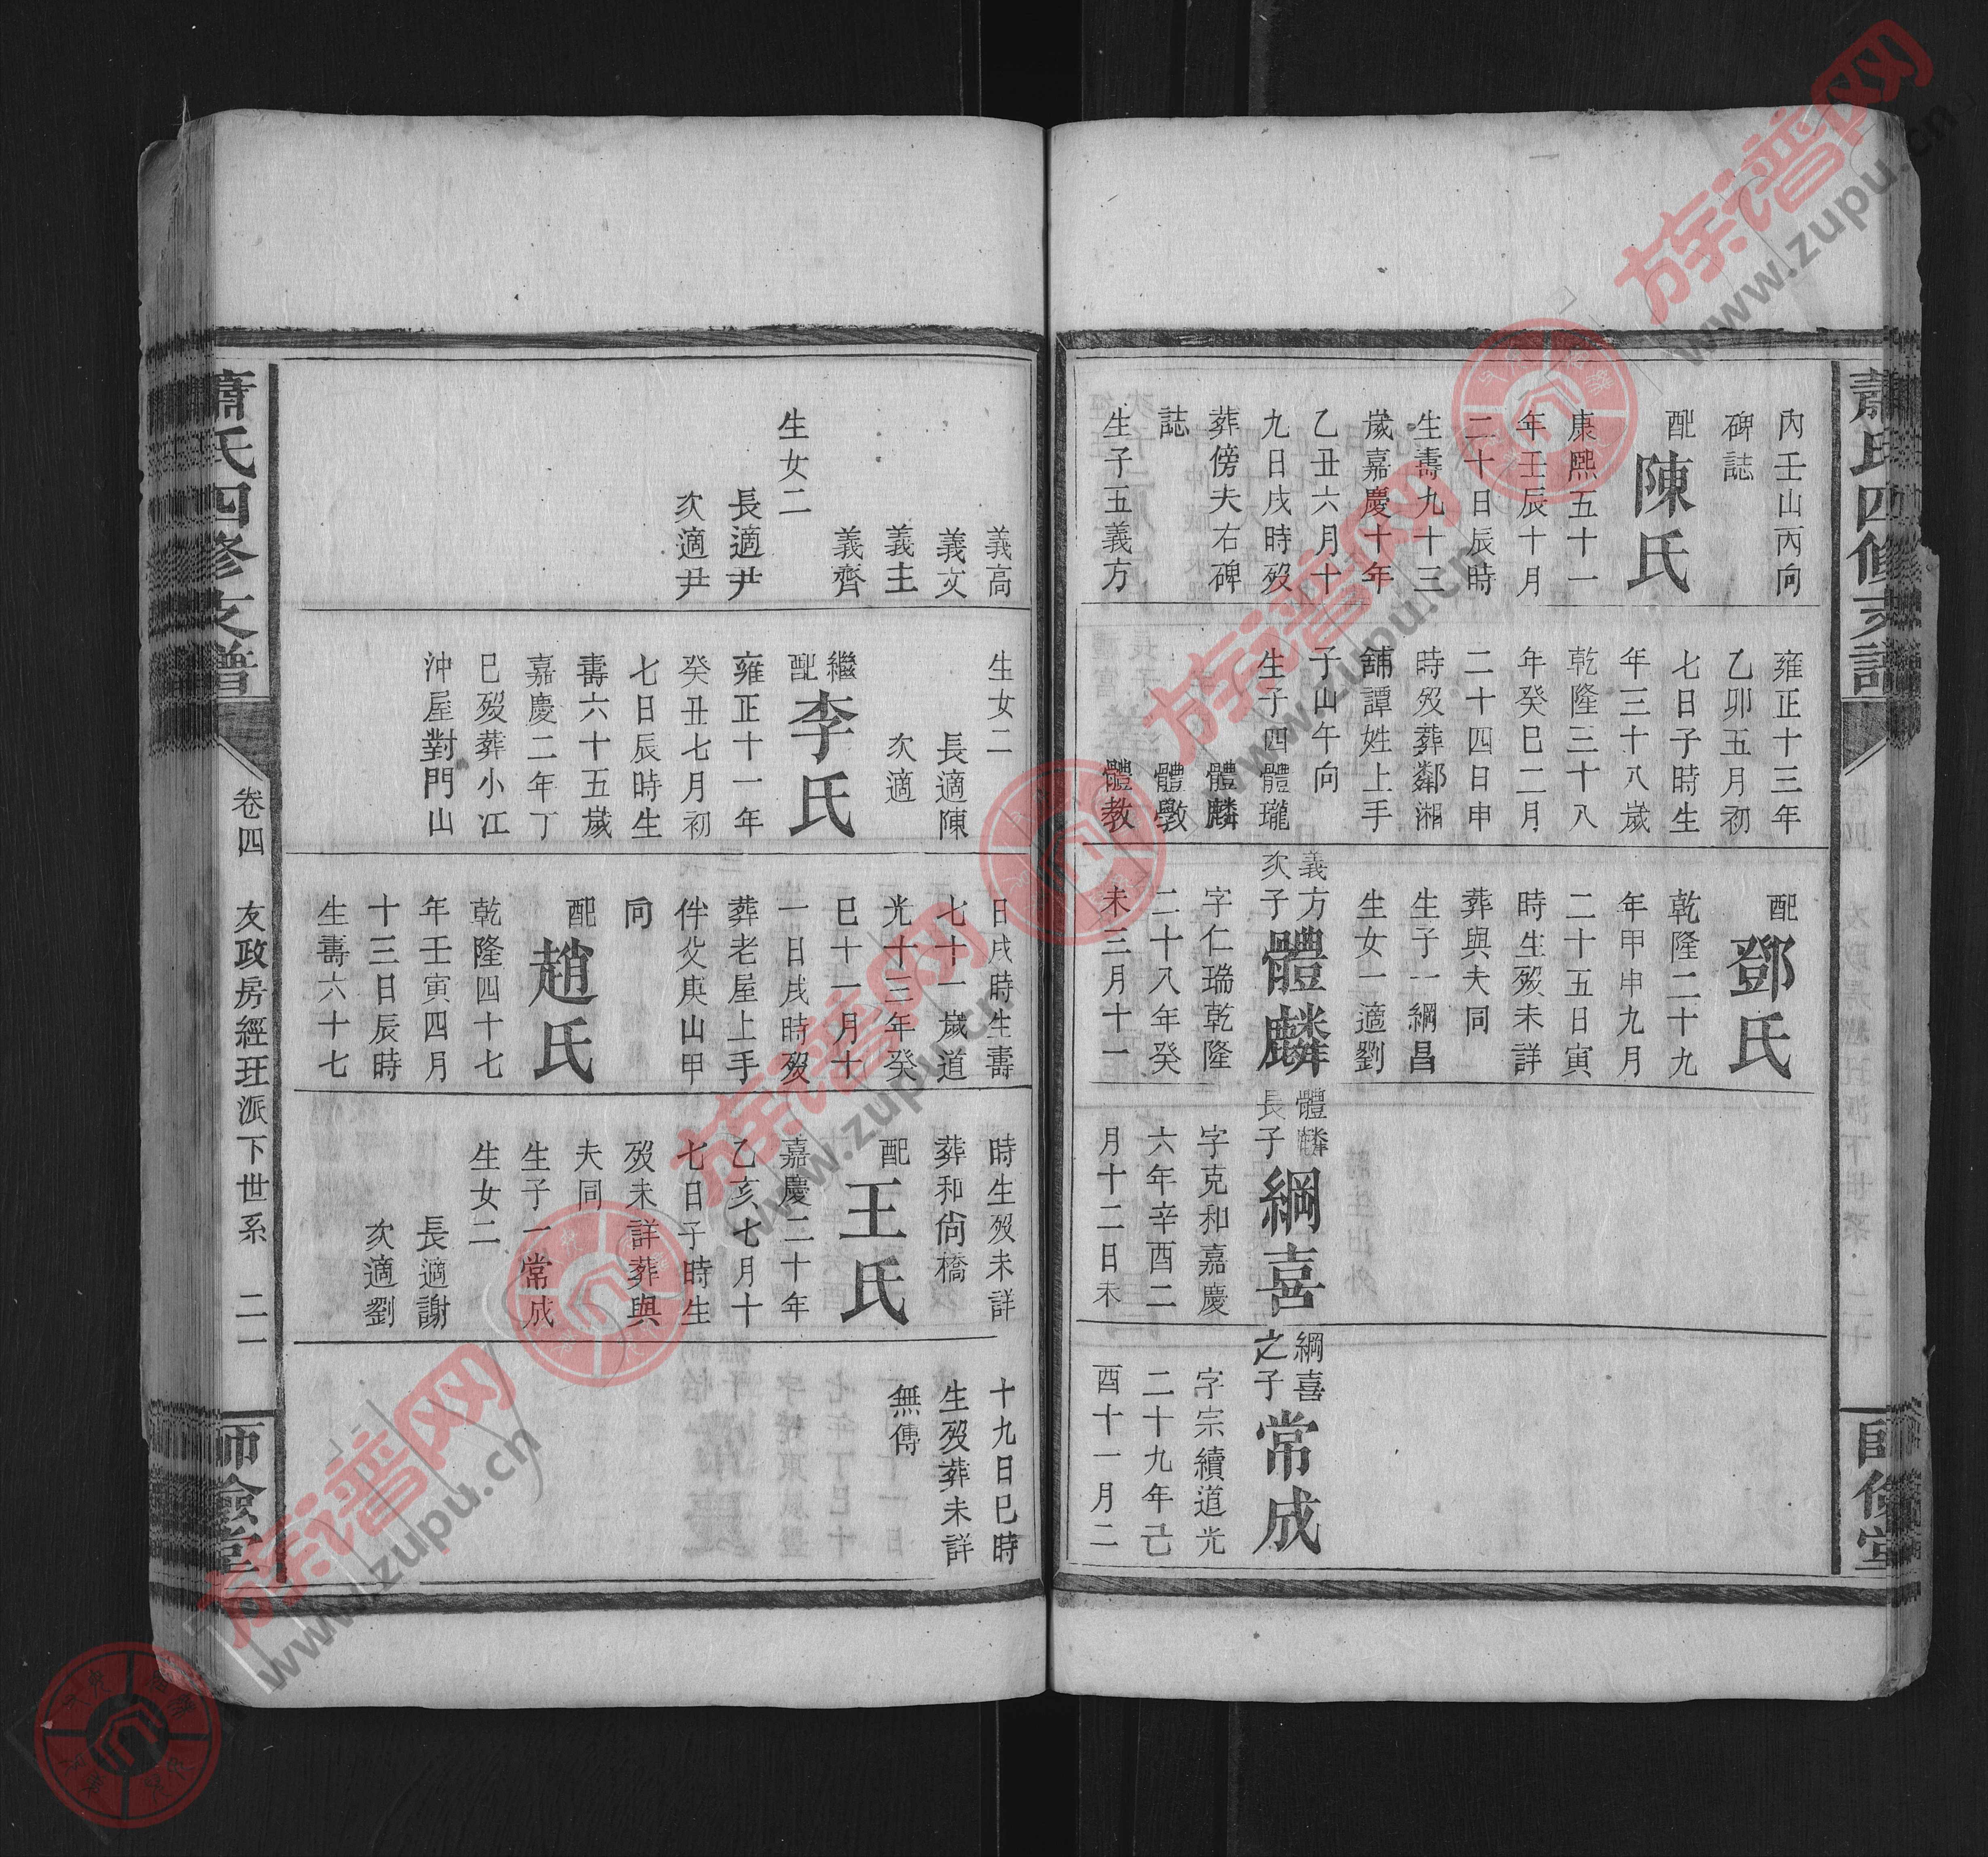 蕭氏四修支譜
師儉堂
內壬山丙向
碑誌
配陳氏
康熙五十一
年壬辰十月
二十日辰時
生壽九十三
歲嘉慶十年
乙丑六月十
九日戌時歿
葬傍夫右碑
誌
生子五義方
雍正十三年
乙卯五月初
七日子時生
年三十八歲
乾隆三十八
年癸巳二月
二十四日申
時歿葬鄰湘
舖譚姓上手
子山午向
生子四體瓏
體麟
體斆
體教
配鄧氏
乾隆二十九
年甲申九月
二十五日寅
時生歿未詳
葬與夫同
生子一綱昌
生女一適劉
義方次子體麟
字仁瑞乾隆
二十八年癸
未三月十一
體麟長子綱喜
字克和嘉慶
六年辛酉二
月十二日未
綱喜之子常成
字宗續道光
二十九年己
酉十一月二
義高
義文
義主
義齊
生女二
長適尹
次適尹
生女二
長適陳
次適
繼配李氏
雍正十一年
癸丑七月初
七日辰時生
壽六十五歲
嘉慶二年丁
巳歿葬小江
沖屋對門山
日戌時生壽
七十一歲道
光十三年癸
巳十一月十
一日戌時歿
葬老屋上手
伴父庚山甲
向
配趙氏
乾隆四十七
年壬寅四月
十三日辰時
生壽六十七
時生歿未詳
葬和尙橋
配王氏
嘉慶二十年
乙亥七月十
七日子時生
歿未詳葬與
夫同
生子一常成
生女二
長適謝
次適劉
十九日巳時
生歿葬未詳
無傳
蕭氏四修支譜
卷四
友政房經班派下世系
二一
師儉堂
族谱网
www.zupu.cn